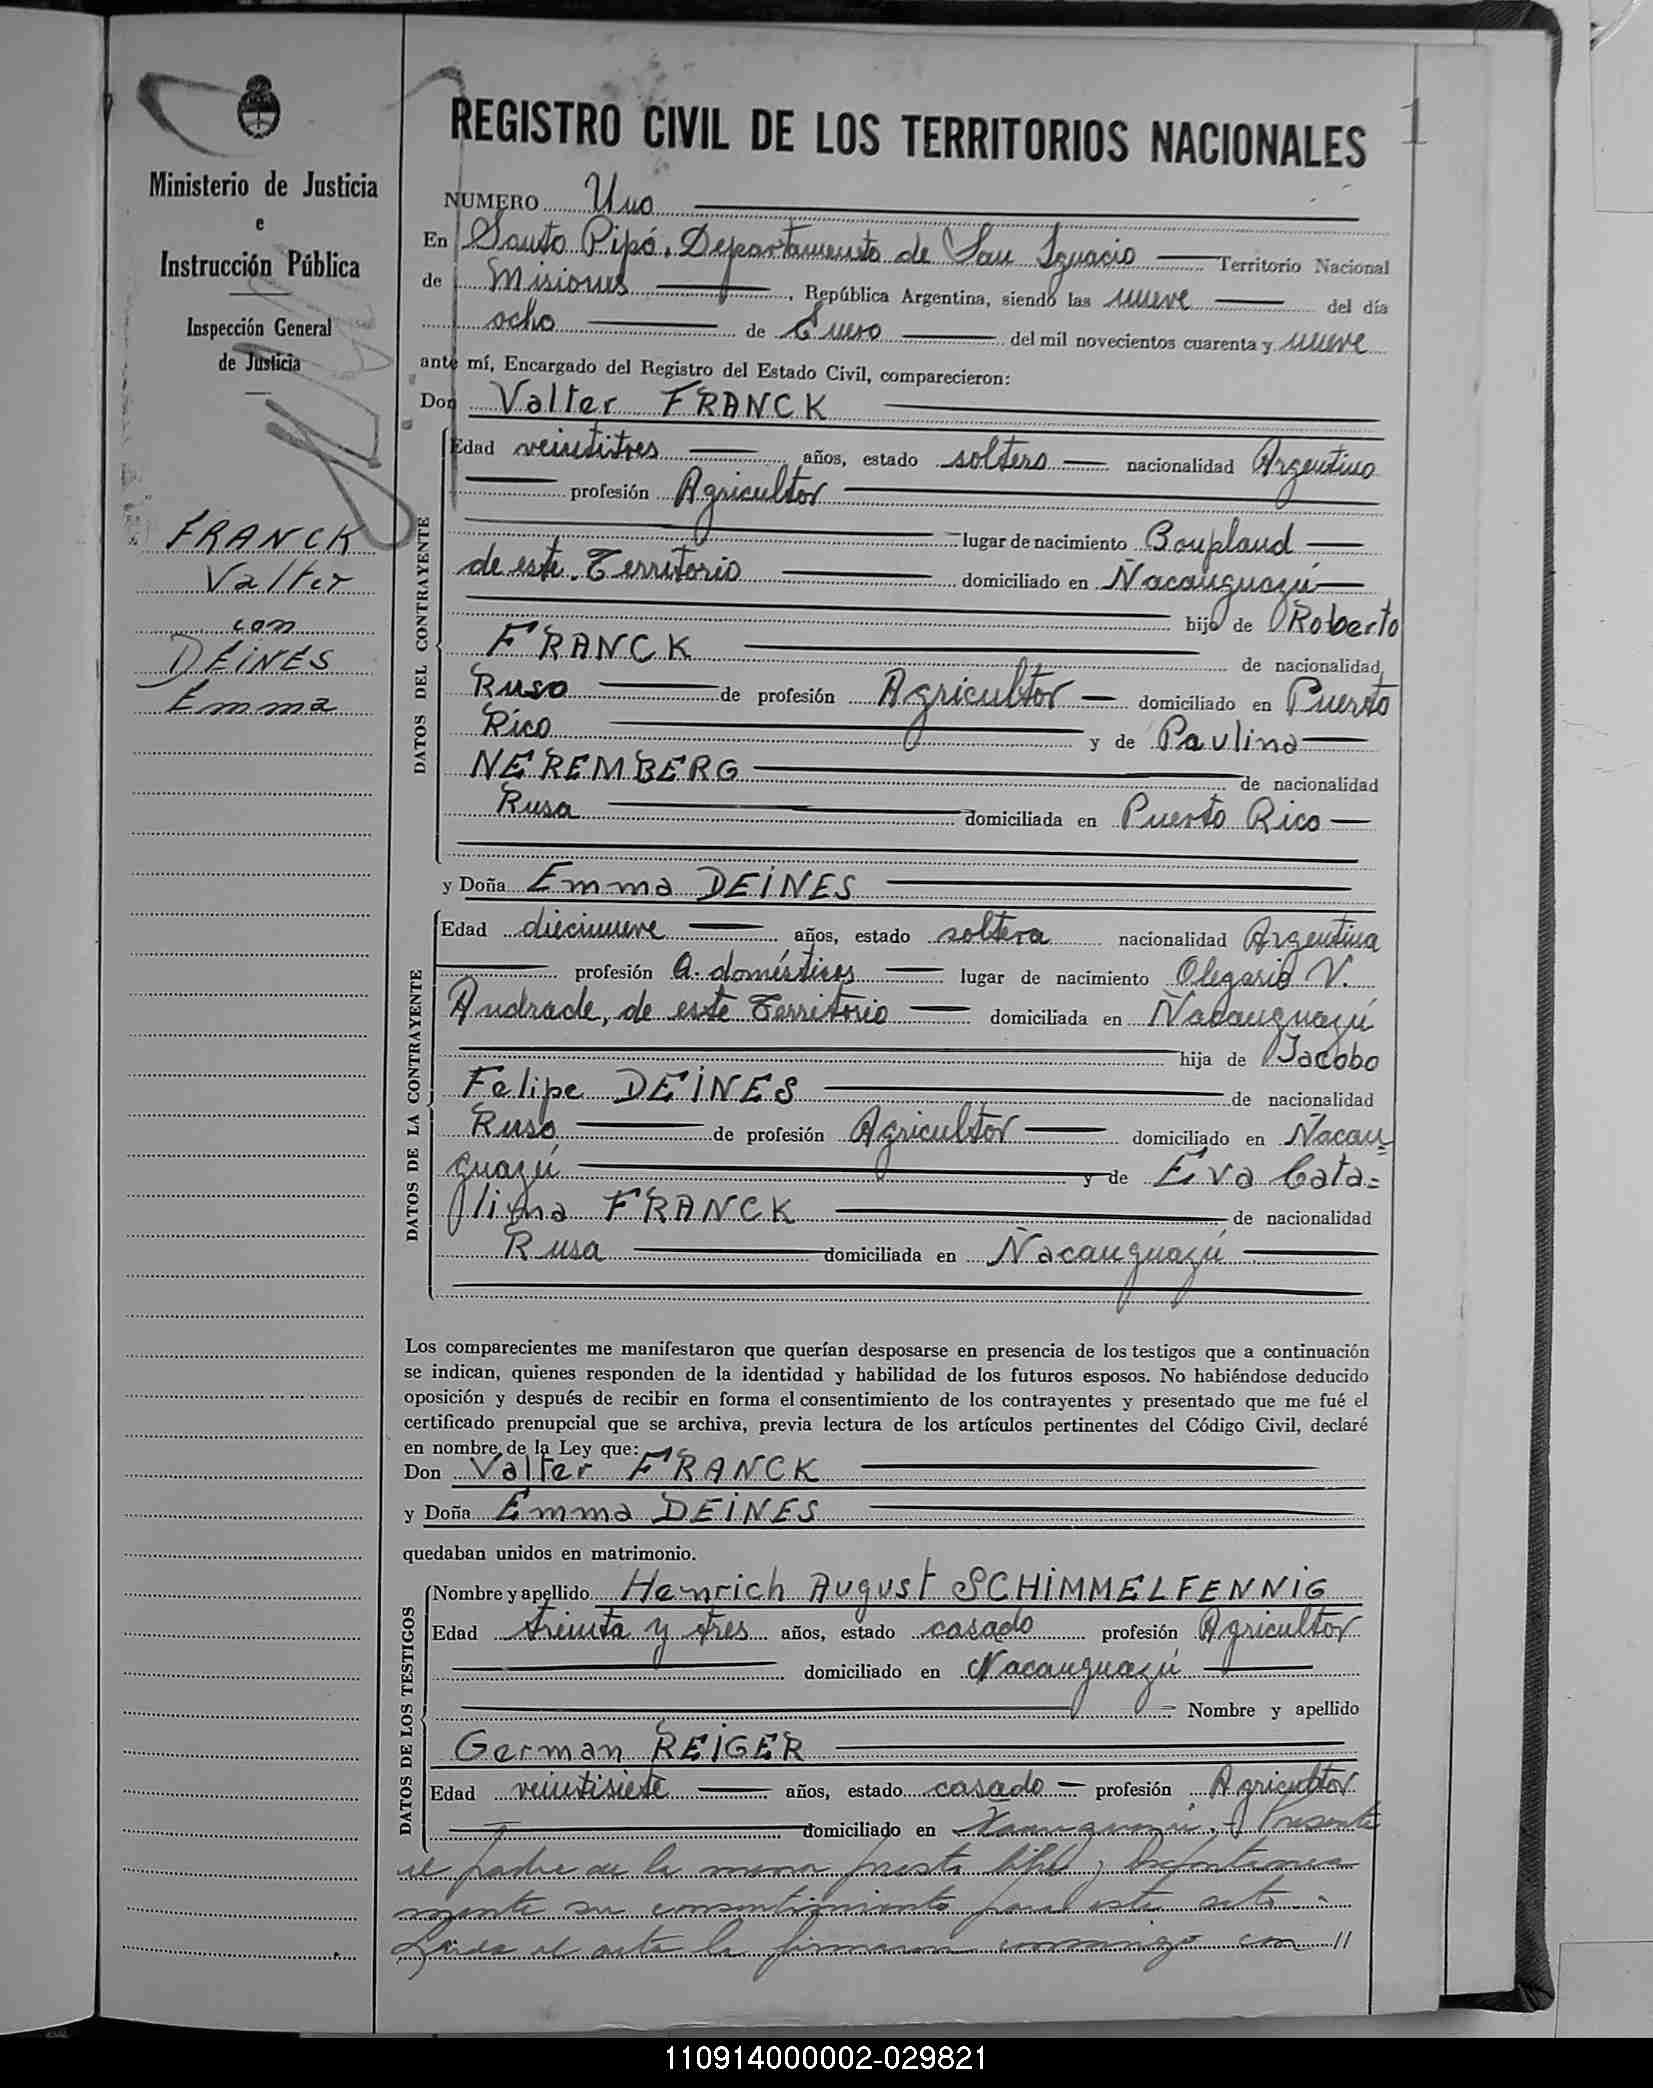 1
Ministerio de Justicia
e
Instrucción Pública
Inspección General
de Justicia
FRANCK
Valter
con
DEINES
Emma
REGISTRO CIVIL DE LOS TERRITORIOS NACIONALES
NUMERO Uno
En Santo Pipó, Departamento de San Ignacio Territorio Nacional
de Misiones, República Argentina, siendo las nueve del día
ocho de Enero del mil novecientos cuarenta y nueve
ante mí, Encargado del Registro del Estado Civil, comparecieron:
Don Valter FRANCK
DATOS DEL CONTRAYENTE
Edad veintitres años, estado soltero nacionalidad Argentino
profesión Agricultor
lugar de nacimiento Bonpland
de este Territorio domiciliado en Ñacanguazú
hijo de Roberto
FRANCK de nacionalidad
Ruso de profesión Agricultor domiciliado en Puerto
Rico y de Paulina
NEREMBERG de nacionalidad
Rusa domiciliada en Puerto Rico
y Doña Emma DEINES
DATOS DE LA CONTRAYENTE
Edad diecinueve años, estado soltera nacionalidad Argentina
profesión Q. domésticos lugar de nacimiento Olegario V.
Andrade, de este Territorio domiciliada en Ñacanguazú
hija de Jacobo
Felipe DEINES de nacionalidad
Ruso de profesión Agricultor domiciliado en Ñacan=
guazú y de Eva Cata=
lina FRANCK de nacionalidad
Rusa domiciliada en Ñacanguazú
Los comparecientes me manifestaron que querían desposarse en presencia de los testigos que a continuación
se indican, quienes responden de la identidad y habilidad de los futuros esposos. No habiéndose deducido
oposición y después de recibir en forma el consentimiento de los contrayentes y presentado que me fué el
certificado prenupcial que se archiva, previa lectura de los artículos pertinentes del Código Civil, declaré
en nombre de la Ley que:
Don Valter FRANCK
y Doña Emma DEINES
quedaban unidos en matrimonio.
DATOS DE LOS TESTIGOS
Nombre y apellido Henrich August SCHIMMELFENNIG
Edad treinta y tres años, estado casado profesión Agricultor
domiciliado en Ñacanguazú
Nombre y apellido
German REIGER
Edad veintisiete años, estado casado profesión Agricultor
domiciliado en Ñacanguazú. Presente
el padre de la menor presta libre y espontanea
mente su consentimiento para este acto.
Leída el acta la firmaron conmigo con //
110914000002-029821